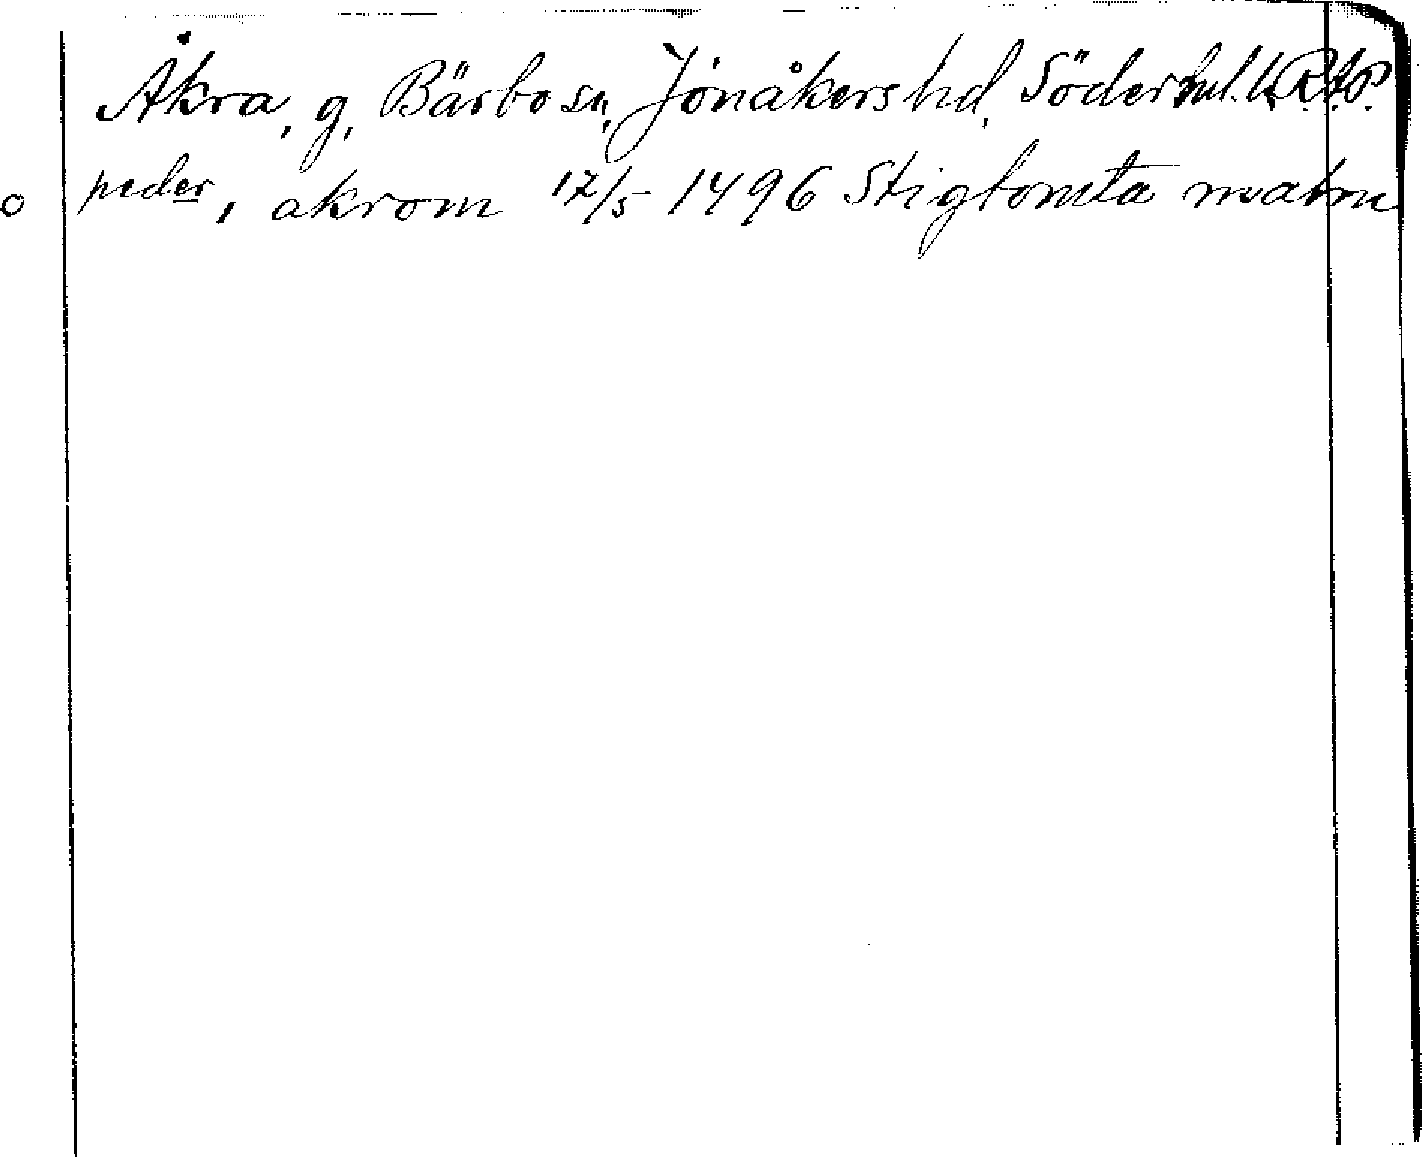 Åkra, g, Bärbo sn, Jönåkers hd, Söderml. l. RAP.
o peder, akrom 17/5 1496 Stigtomta